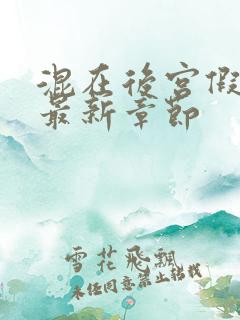 混在後宮假
最新章節
雪花飛飄
未经同意禁止转载